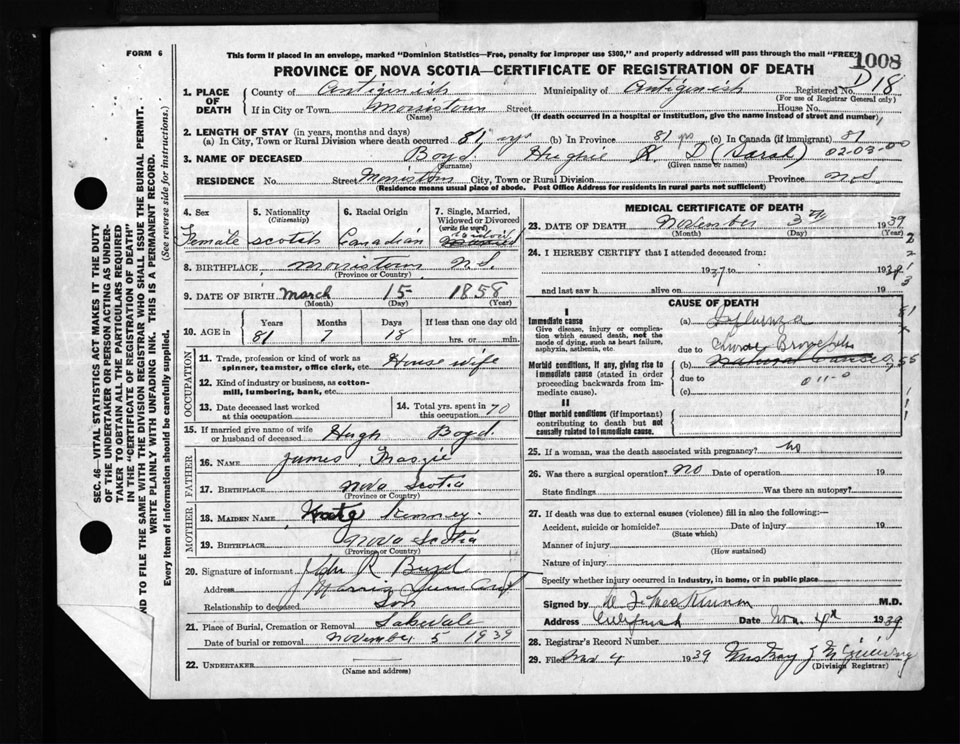 FORM 6
This form if placed in an envelope, marked "Dominion Statistics—Free, penalty for improper use $300," and properly addressed will pass through the mail "FREE"
1008
PROVINCE OF NOVA SCOTIA—CERTIFICATE OF REGISTRATION OF DEATH
D 18
1. PLACE OF DEATH
County of Antigonish Municipality of Antigonish Registered No.
(For use of Registrar General only)
If in City or Town Morristown Street House No.
(Name) (If death occurred in a hospital or institution, give the name instead of street and number)
2. LENGTH OF STAY (in years, months and days)
(a) In City, Town or Rural Division where death occurred 81 yrs (b) In Province 81 yrs (c) In Canada (if immigrant) 81
3. NAME OF DECEASED Boyd Hughie R. D (Sarah) 02-03-00
(Surname) (Given name or names)
RESIDENCE No. Street Morristown City, Town or Rural Division Province N.S
(Residence means usual place of abode. Post Office Address for residents in rural parts not sufficient)
4. Sex
5. Nationality
(Citizenship)
6. Racial Origin
7. Single, Married, Widowed or Divorced
(write the word)
Female Scotch Canadian
8. BIRTHPLACE Morristown N.S.
(Province or Country)
9. DATE OF BIRTH March 15 1858
(Month) (Day) (Year)
10. AGE in
Years Months Days If less than one day old
81 7 18 hrs. or min.
OCCUPATION
11. Trade, profession or kind of work as spinner, teamster, office clerk, etc. House wife
12. Kind of industry or business, as cotton-mill, lumbering, bank, etc.
13. Date deceased last worked at this occupation
14. Total yrs. spent in this occupation 70
15. If married give name of wife or husband of deceased Hugh Boyd
FATHER
16. NAME James
17. BIRTHPLACE Nova Scotia
(Province or Country)
MOTHER
18. MAIDEN NAME Kate Kenney
19. BIRTHPLACE Nova Scotia
(Province or Country)
20. Signature of informant John R Boyd
Address
Relationship to deceased Son
21. Place of Burial, Cremation or Removal Lakevale
Date of burial or removal November 5 1939
22. UNDERTAKER
(Name and address)
MEDICAL CERTIFICATE OF DEATH
23. DATE OF DEATH November 3rd 1939
(Month) (Day) (Year)
24. I HEREBY CERTIFY that I attended deceased from:
1937 to 1939
and last saw h alive on 19
CAUSE OF DEATH
I
Immediate cause
Give disease, injury or complication which caused death, not the mode of dying, such as heart failure, asphyxia, asthenia, etc.
(a) Influenza
due to Chronic Bronchitis
Morbid conditions, if any, giving rise to immediate cause (stated in order proceeding backwards from immediate cause).
(b) Natural Causes
due to
(c)
II
Other morbid conditions (if important) contributing to death but not causally related to immediate cause.
25. If a woman, was the death associated with pregnancy? No
26. Was there a surgical operation? No Date of operation 19
State findings Was there an autopsy?
27. If death was due to external causes (violence) fill in also the following:—
Accident, suicide or homicide? Date of injury 19
(State which)
Manner of injury
(How sustained)
Nature of injury
Specify whether injury occurred in industry, in home, or in public place
Signed by W. J. MacKinnon M.D.
Address Antigonish Date Nov. 4th 1939
28. Registrar's Record Number
29. Filed Nov 4 1939
(Division Registrar)
SEC. 46—VITAL STATISTICS ACT MAKES IT THE DUTY
OF THE UNDERTAKER OR PERSON ACTING AS UNDER-
TAKER TO OBTAIN ALL THE PARTICULARS REQUIRED
IN THE "CERTIFICATE OF REGISTRATION OF DEATH"
ND TO FILE THE SAME WITH THE DIVISION REGISTRAR WHO SHALL ISSUE THE BURIAL PERMIT.
WRITE PLAINLY WITH UNFADING INK. THIS IS A PERMANENT RECORD.
Every item of information should be carefully supplied. (See reverse side for instructions.)